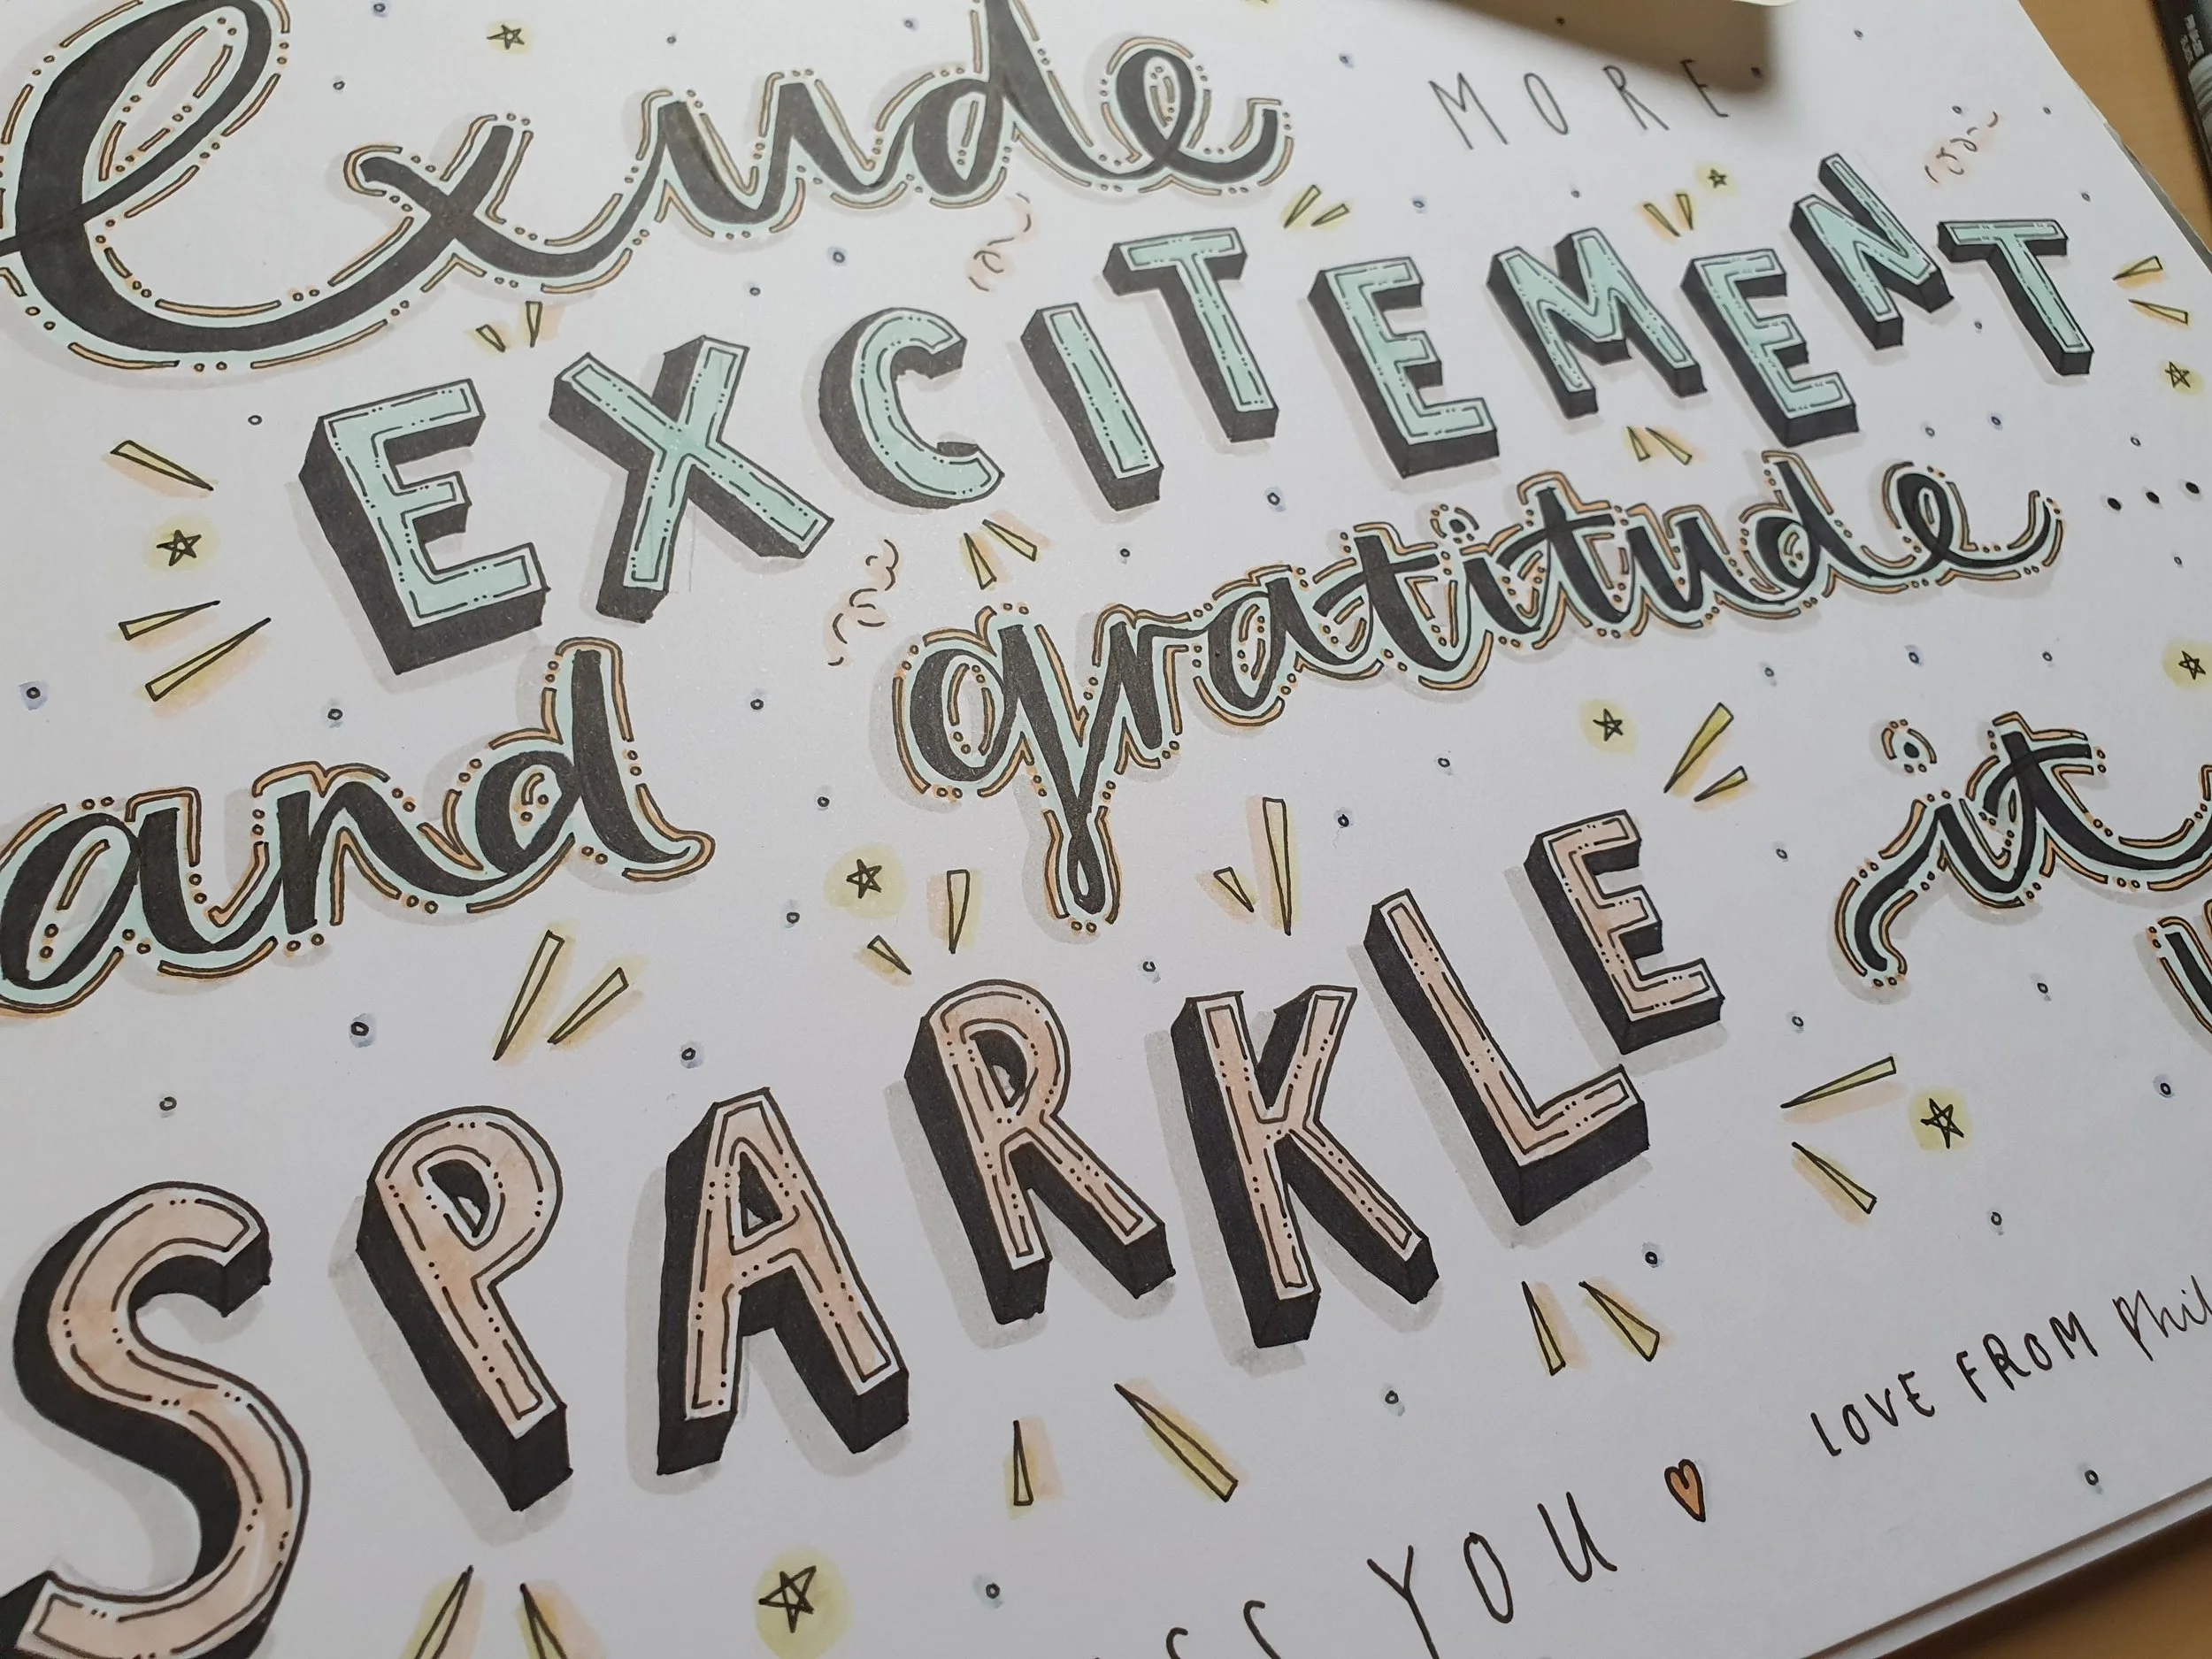 Exude MORE
EXCITEMENT
and gratitude...
SPARKLE it
YOU
LOVE FROM